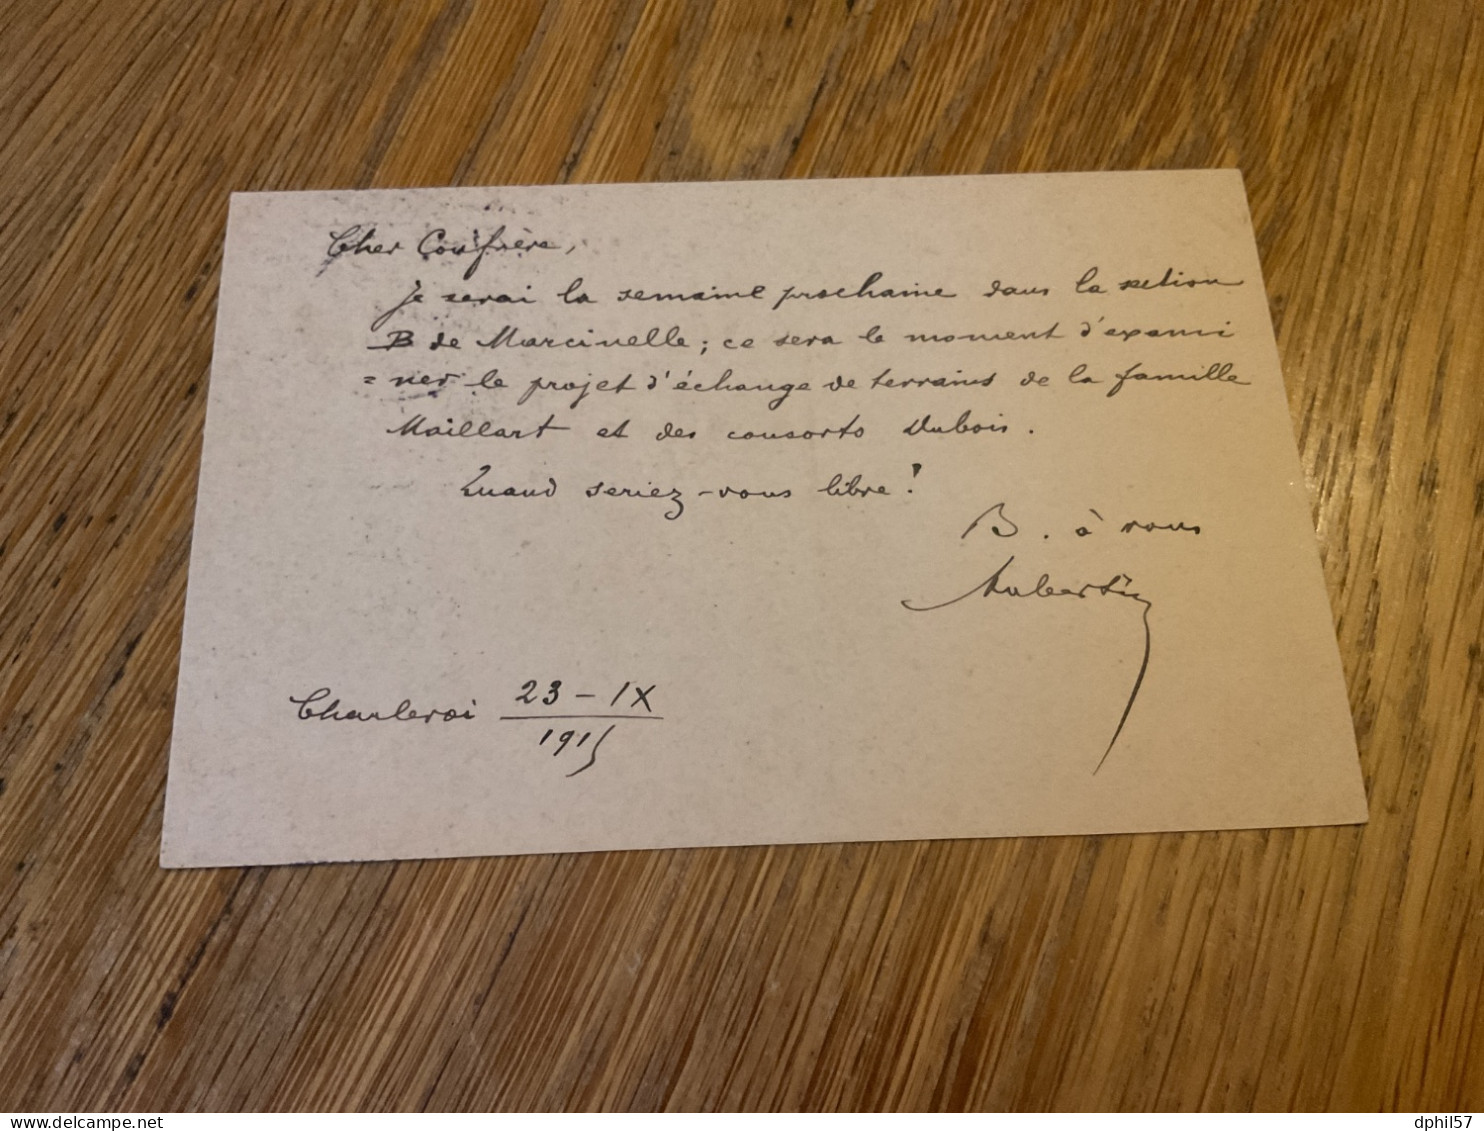 Cher Confrère,
Je serai la semaine prochaine dans la section
B de Marcinelle ; ce sera le moment d'exami
= ner le projet d'échange de terrains de la famille
Maillart et des consorts Dubois.
Quand seriez-vous libre ?
B. à vous
Aubertin
Charleroi 23 - IX
1915
www.delcampe.net
dphil57